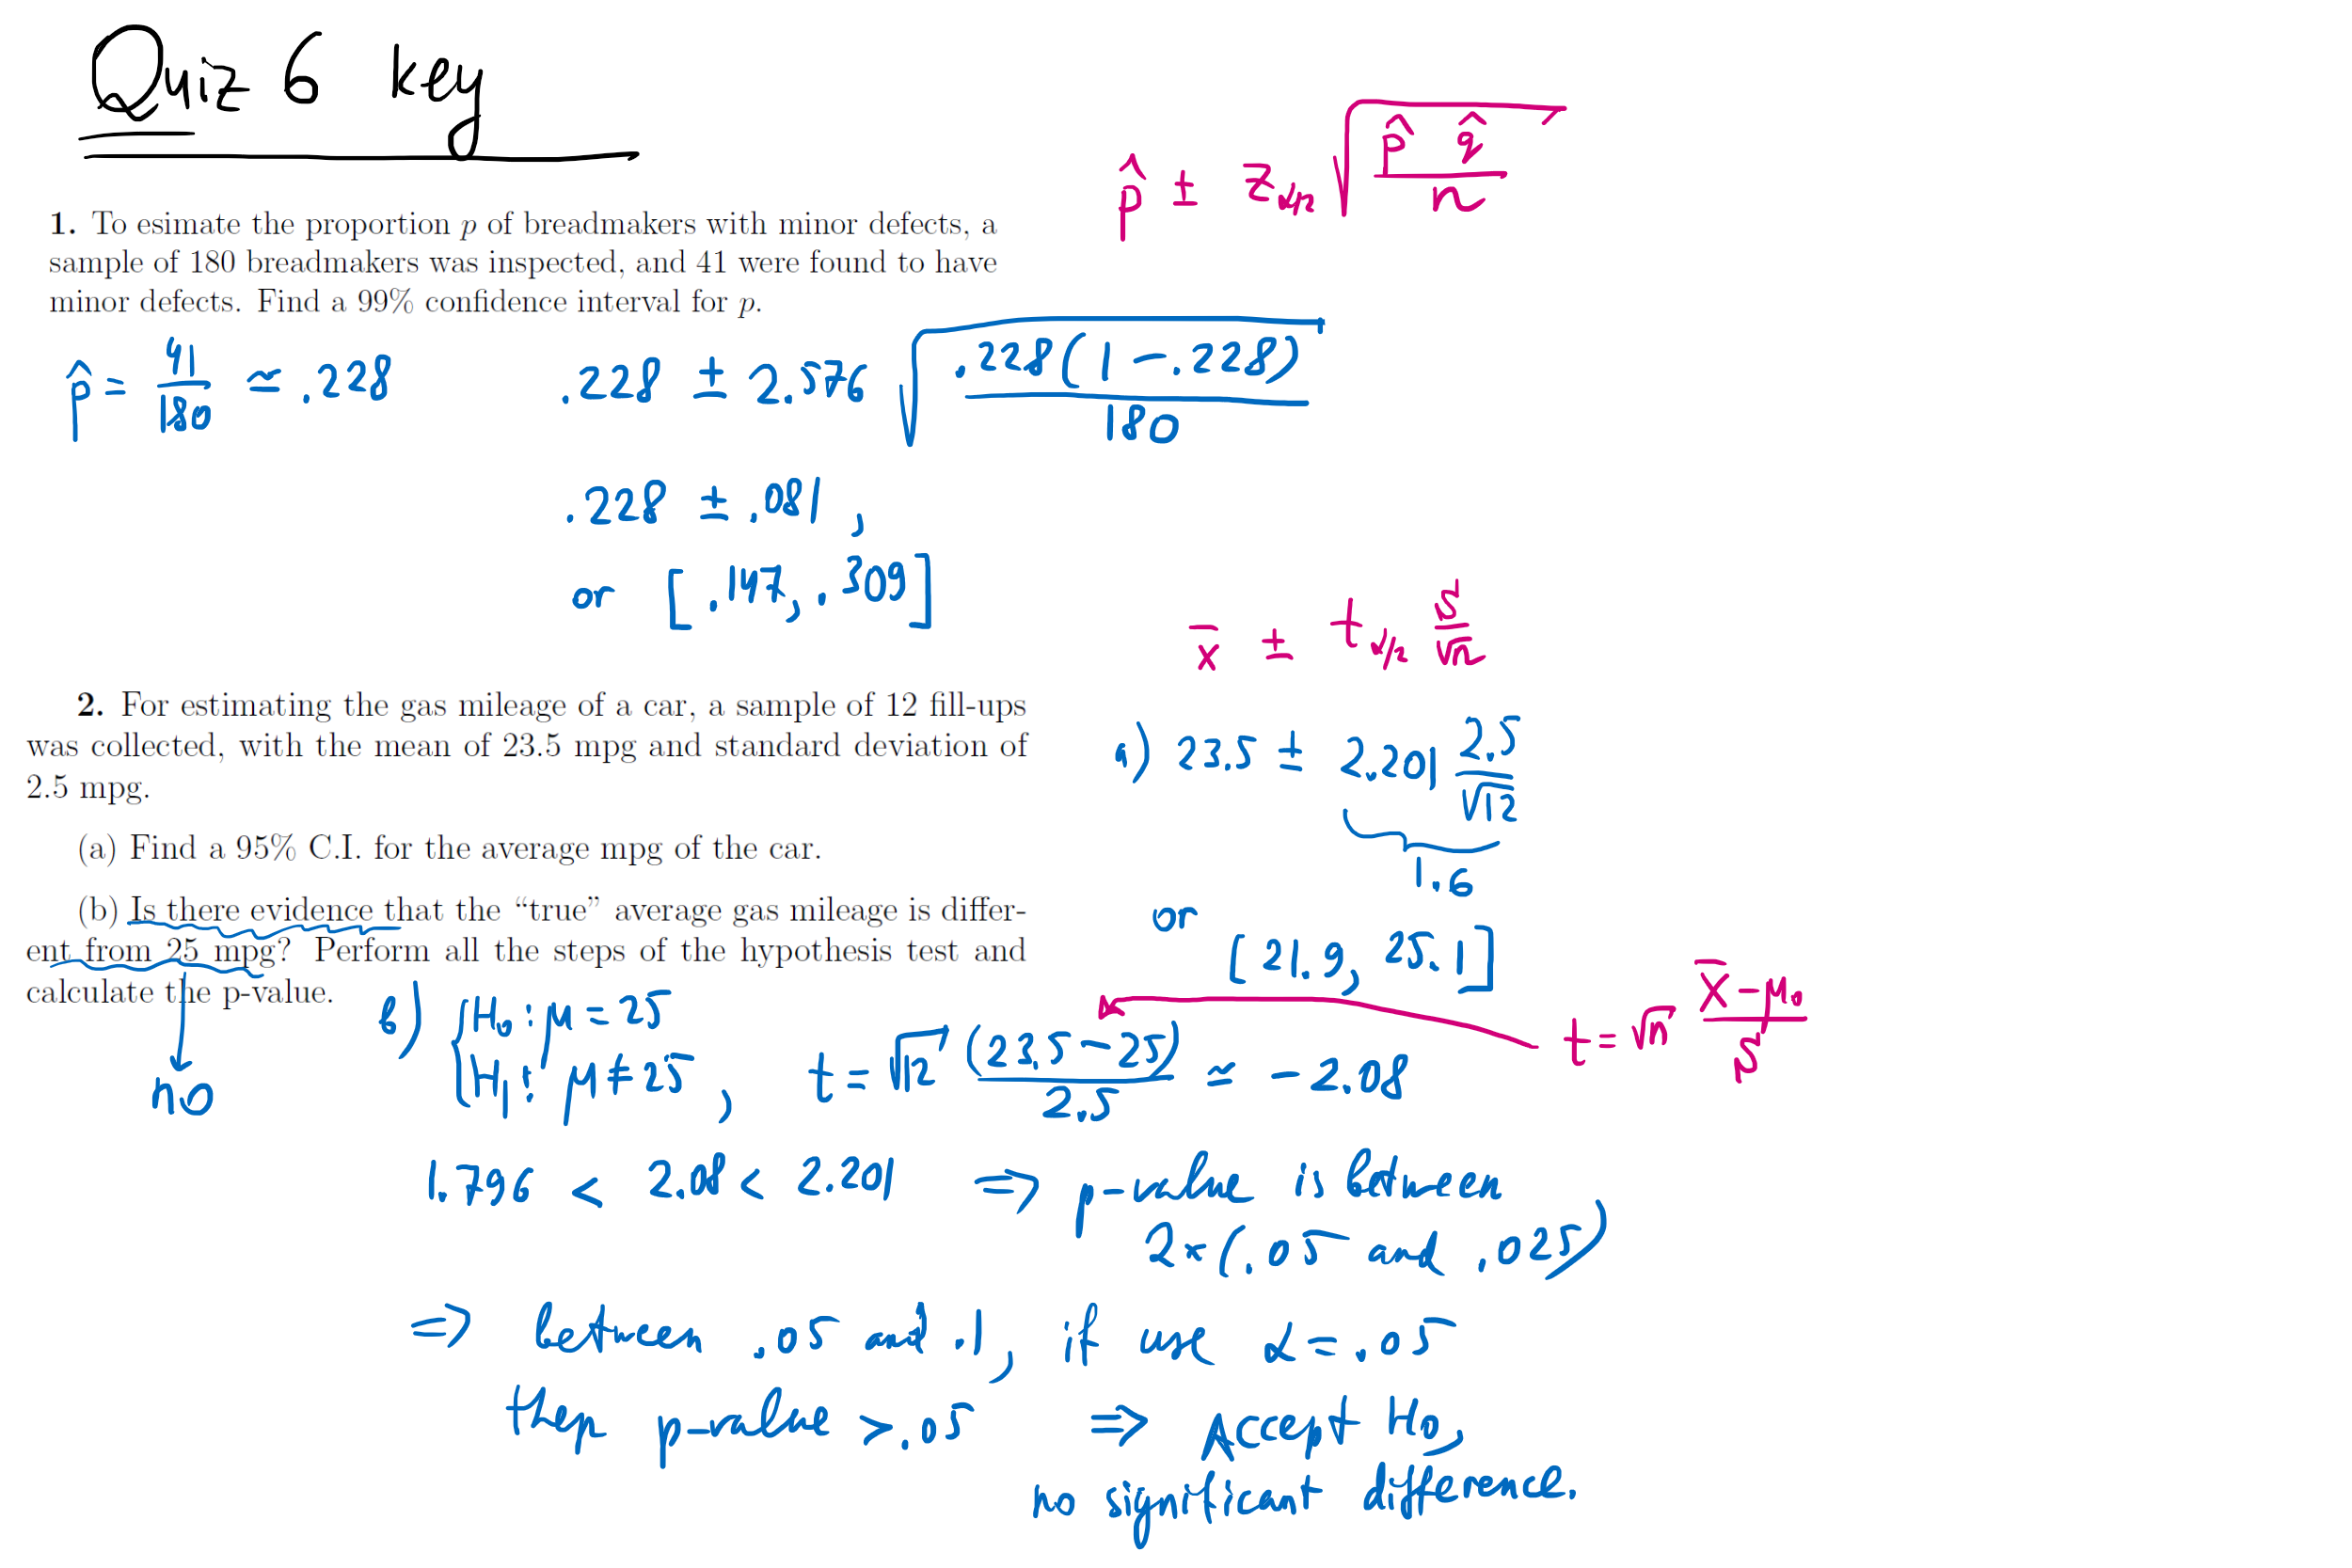 Quiz 6 key
p̂ ± z_{α/2} √(p̂ q̂ / n)
1. To esimate the proportion p of breadmakers with minor defects, a
sample of 180 breadmakers was inspected, and 41 were found to have
minor defects. Find a 99% confidence interval for p.
p̂ = 41/180 ≃ .228
.228 ± 2.576 √(.228(1 − .228) / 180)
.228 ± .081,
or [.147, .309]
x̄ ± t_{α/2} s/√n
2. For estimating the gas mileage of a car, a sample of 12 fill-ups
was collected, with the mean of 23.5 mpg and standard deviation of
2.5 mpg.
(a) Find a 95% C.I. for the average mpg of the car.
(b) Is there evidence that the “true” average gas mileage is differ-
ent from 25 mpg? Perform all the steps of the hypothesis test and
calculate the p-value.
no
a) 23.5 ± 2.201 2.5/√12
1.6
or [21.9, 25.1]
t = √n (x̄ − μ₀)/s
b) {H₀: μ = 25
H₁: μ ≠ 25, t = √12 (23.5 − 25)/2.5 ≃ −2.08
1.796 < 2.08 < 2.201 ⇒ p-value is between
2×(.05 and .025)
⇒ between .05 and .1, if use α = .05
then p-value > .05 ⇒ Accept H₀,
no significant difference.